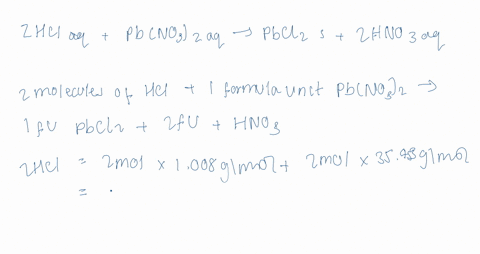 2HCl aq + Pb(NO3)2 aq → PbCl2 s + 2HNO3 aq
2 molecules of HCl + 1 formula unit Pb(NO3)2 →
1 fU PbCl2 + 2fU + HNO3
2HCl = 2mol × 1.008g/mol + 2mol × 35.45g/mol
=